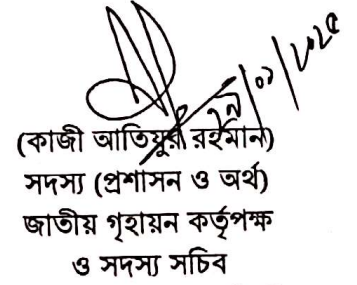 ২৯/০১/২০২৫
(কাজী আতিয়ুর রহমান)
সদস্য (প্রশাসন ও অর্থ)
জাতীয় গৃহায়ন কর্তৃপক্ষ
ও সদস্য সচিব